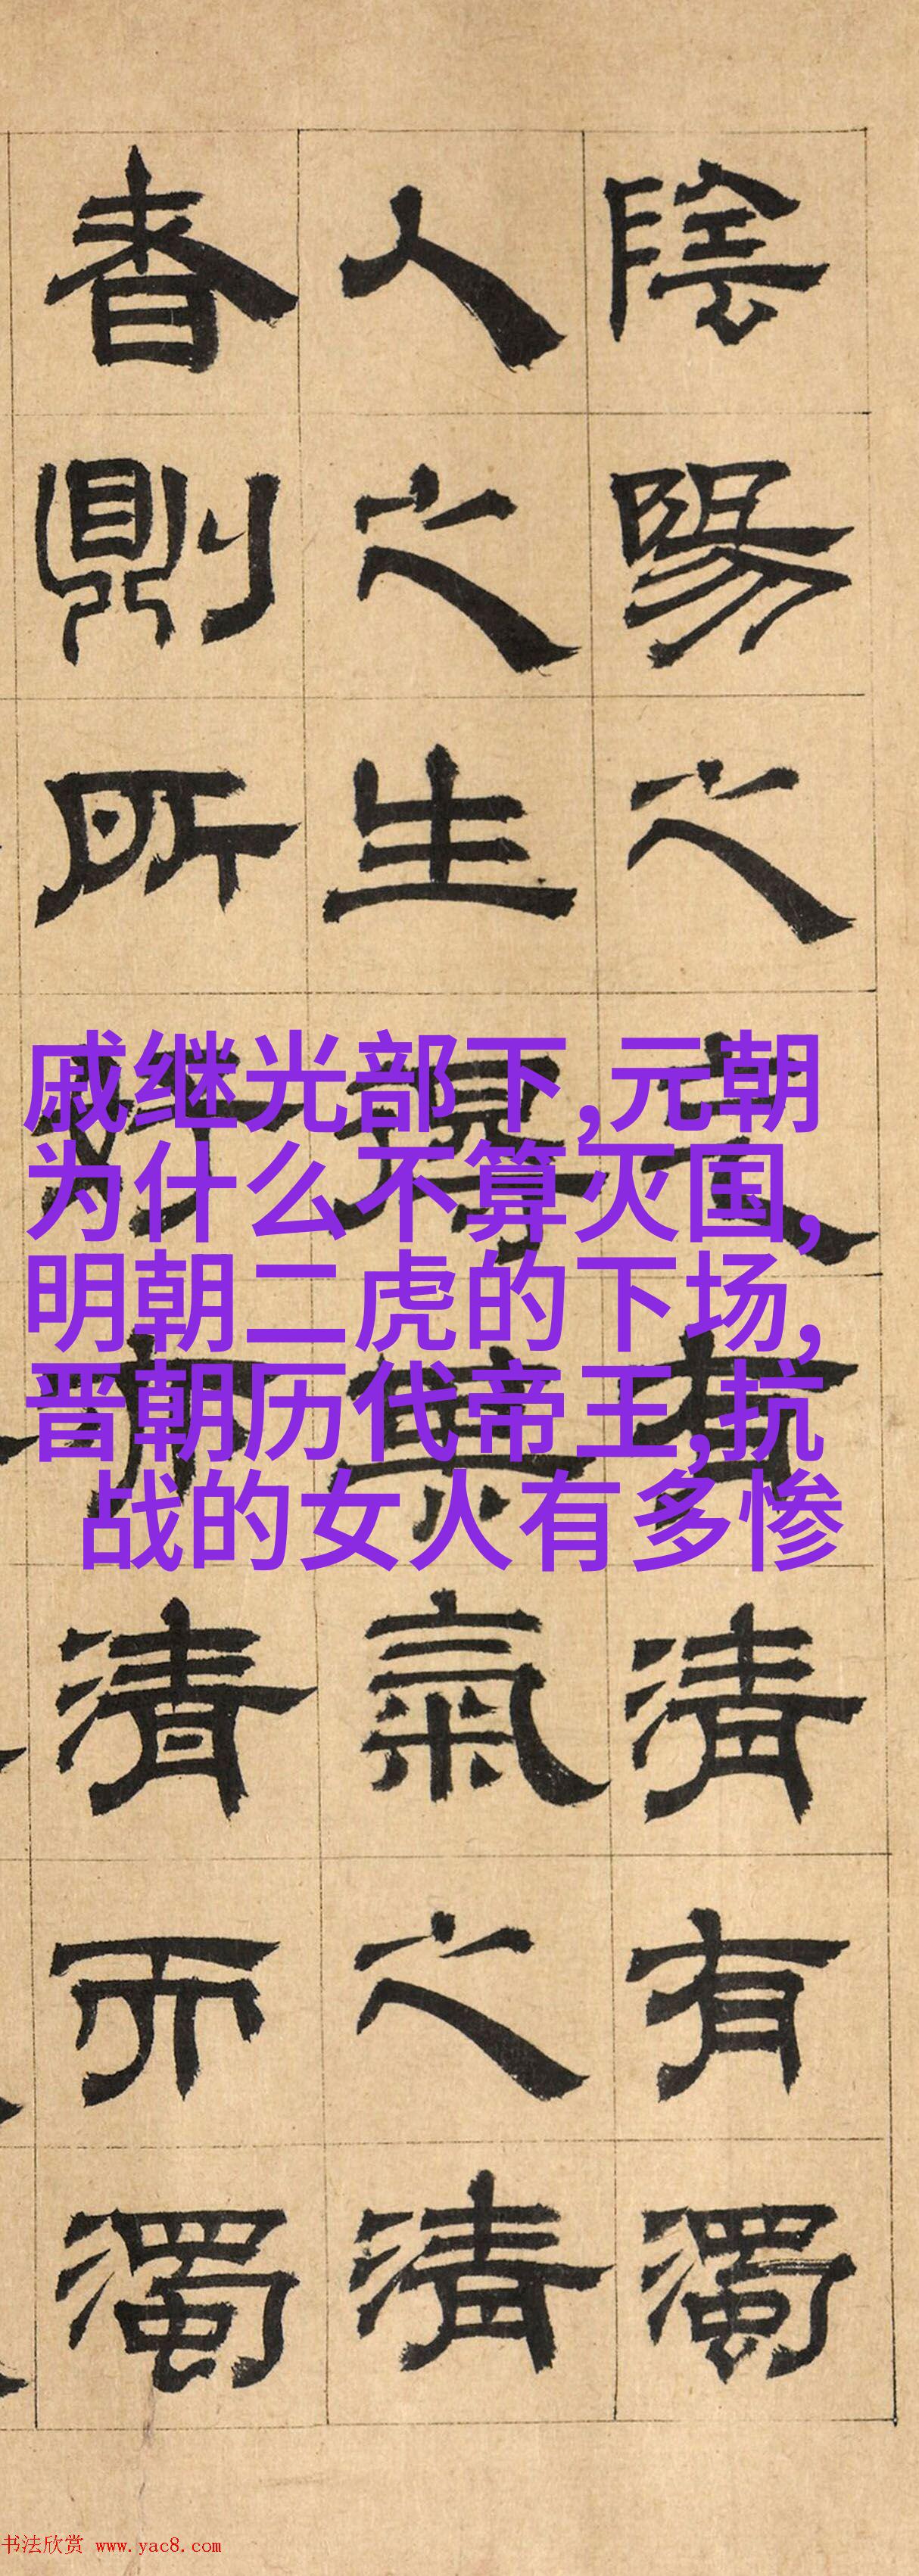 陰陽之有清有濁
人之生得其氣之清
者則所行亦清而濁
戚继光部下,元朝
为什么不算灭国,
明朝二虎的下场,
晋朝历代帝王,抗
战的女人有多惨
书法欣赏 www.yac8.com